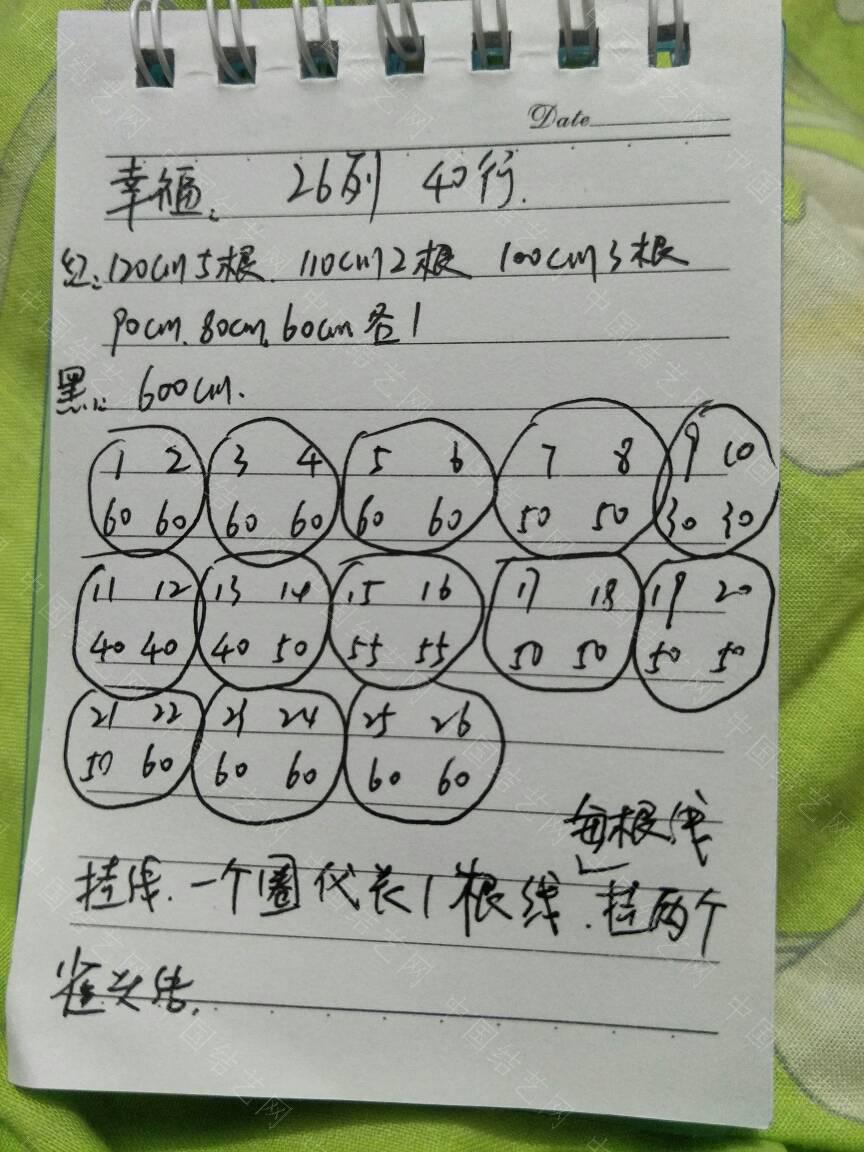 Date
幸福: 26列 40行.
红: 120cm 5根. 110cm 2根 100cm 3根
90cm. 80cm. 60cm 各1
黑: 600cm.
1 2 3 4 5 6 7 8 9 10
60 60 60 60 60 60 50 50 30 30
11 12 13 14 15 16 17 18 19 20
40 40 40 50 55 55 50 50 50 50
21 22 23 24 25 26
50 60 60 60 60 60
每根线
挂线. 一个圈代表1根线. 挂两个
雀头结.
中国结艺网